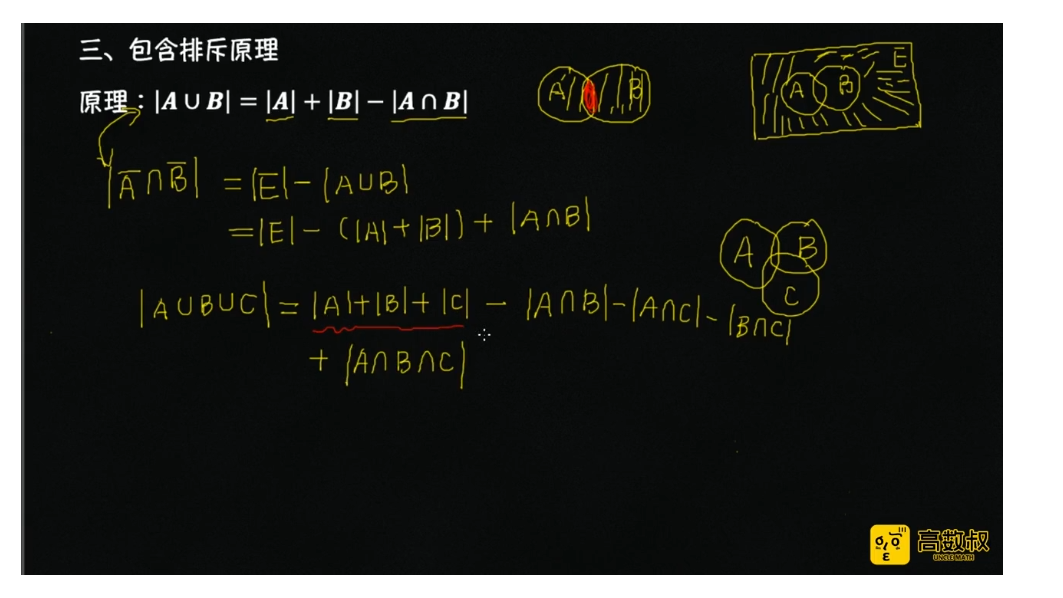 三、包含排斥原理
原理：|A ∪ B| = |A| + |B| − |A ∩ B|
A B
A B E
|A̅∩B̅| = |E| − |A∪B|
= |E| − (|A|+|B|) + |A∩B|
A B
C
|A∪B∪C| = |A|+|B|+|C| − |A∩B| − |A∩C| − |B∩C|
+ |A∩B∩C|
高数叔
UNCLE MATH